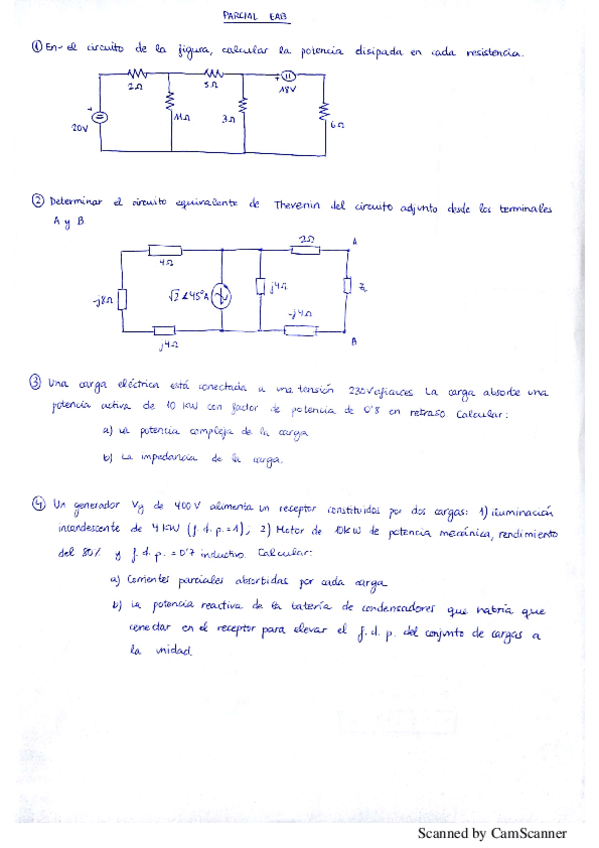 PARCIAL EAB
① En el circuito de la figura, calcular la potencia disipada en cada resistencia.
2Ω 5Ω + 18V
+ 20V 11Ω 3Ω 6Ω
② Determinar el circuito equivalente de Thevenin del circuito adjunto desde los terminales
A y B
4Ω 2Ω A
-j8Ω √2∡45°A j4Ω
j4Ω -j4Ω
③ Una carga eléctrica está conectada a una tensión 230V eficaces La carga absorbe una
potencia activa de 10 kW con factor de potencia de 0'8 en retraso Calcular:
a) La potencia compleja de la carga
b) La impedancia de la carga.
④ Un generador Vg de 400V alimenta un receptor constituidos por dos cargas: 1) iluminación
incandescente de 4 KW (f. d. p. = 1), 2) Motor de 10kW de potencia mecánica, rendimiento
del 80% y f. d. p. = 0'7 inductivo. Calcular:
a) Corrientes parciales absorbidas por cada carga
b) La potencia reactiva de la batería de condensadores que habria que
conectar en el receptor para elevar el f. d. p. del conjunto de cargas a
la unidad.
Scanned by CamScanner